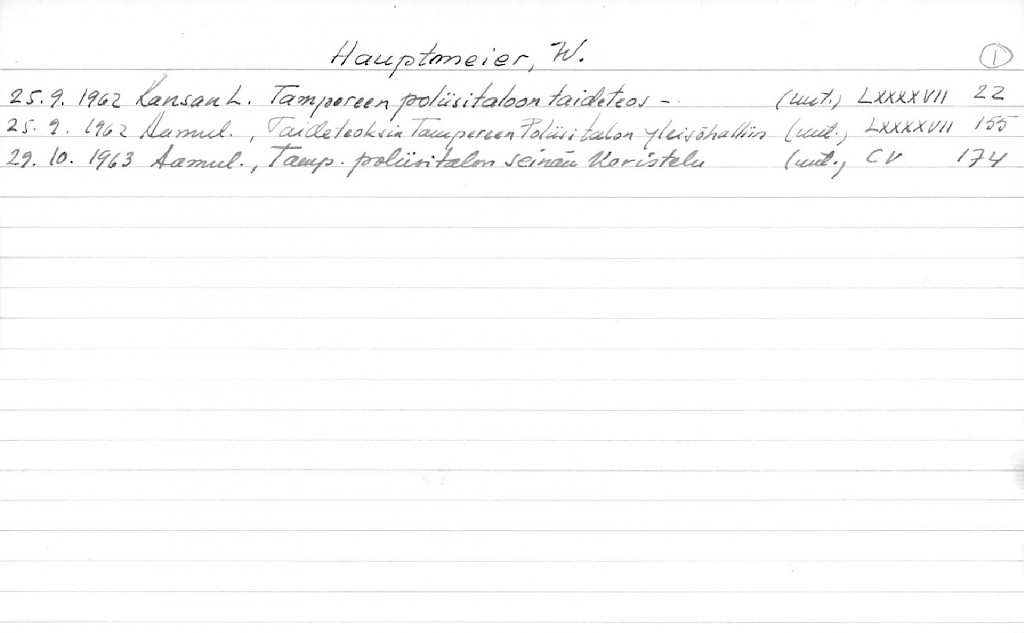 Hauptmeier, W. 1
25.9. 1962 Kansan L. Tampereen poliisitaloon taideteos - (uut.) LXXXXVII 22
25.9. 1962 Aamul., Taideteoksia Tampereen Poliisitalon yleisöhalliin (uut.) LXXXXVII 155
29.10. 1963 Aamul., Tamp. poliisitalon seinän koristelu (uut.) CV 174